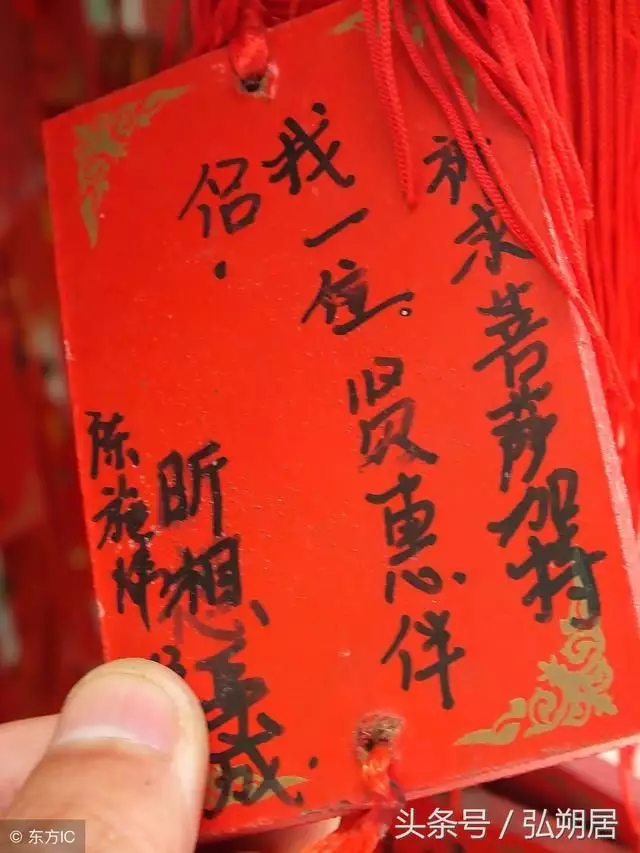 祈求菩萨加持
我一位贤惠伴
侣.
昕想事成.
陈施
头条号 / 弘朔居
© 东方IC